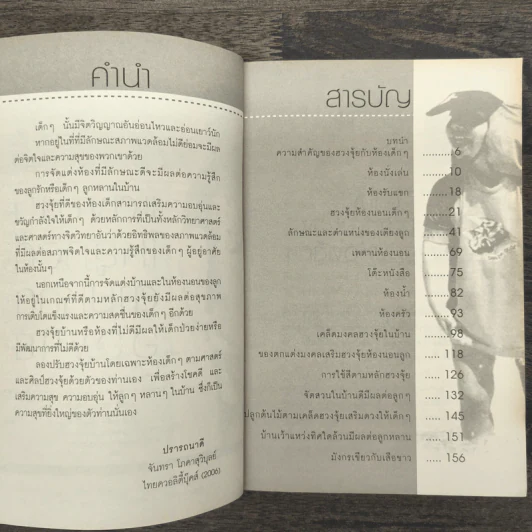 คำนำ
เด็กๆ นั้นมีจิตวิญญาณอันอ่อนไหวและอ่อนเยาว์นัก
หากอยู่ในที่ที่มีลักษณะสภาพแวดล้อมไม่ดีย่อมจะมีผล
ต่อจิตใจและความสุขของพวกเขาด้วย
การจัดแต่งห้องที่มีลักษณะดีจะมีผลต่อความรู้สึก
ของลูกรักหรือเด็กๆ ลูกหลานในบ้าน
ฮวงจุ้ยที่ดีของห้องเด็กสามารถเสริมความอบอุ่นและ
ขวัญกำลังใจให้เด็กๆ ด้วยหลักการที่เป็นทั้งหลักวิทยาศาสตร์
และศาสตร์ทางจิตวิทยาอันว่าด้วยอิทธิพลของสภาพแวดล้อม
ที่มีผลต่อสภาพจิตใจและความรู้สึกของเด็กๆ ผู้อยู่อาศัย
ในห้องนั้นๆ
นอกเหนือจากนี้การจัดแต่งบ้านและในห้องนอนของลูก
ให้อยู่ในเกณฑ์ที่ดีตามหลักฮวงจุ้ยยังมีผลต่อสุขภาพ
การเติบโตแข็งแรงและความสดชื่นของเด็กๆ อีกด้วย
ฮวงจุ้ยบ้านหรือห้องที่ไม่ดีมีผลให้เด็กป่วยง่ายหรือ
มีพัฒนาการที่ไม่ดีด้วย
ลองปรับฮวงจุ้ยบ้านโดยเฉพาะห้องเด็กๆ ตามศาสตร์
และศิลป์ฮวงจุ้ยด้วยตัวของท่านเอง เพื่อสร้างโชคดี และ
เสริมความสุข ความอบอุ่น ให้ลูกๆ หลานๆ ในบ้าน ซึ่งก็เป็น
ความสุขที่ยิ่งใหญ่ของตัวท่านนั่นเอง
ปรารถนาดี
จันทรา โภคาสุวิบุลย์
ไทยควอลิตี้บุ๊คส์ (2006)
สารบัญ
บทนำ
ความสำคัญของฮวงจุ้ยกับห้องเด็กๆ ........6
ห้องนั่งเล่น ........10
ห้องรับแขก ........18
ฮวงจุ้ยห้องนอนเด็กๆ ........21
ลักษณะและตำแหน่งของเตียงลูก ........41
เพดานห้องนอน ........69
โต๊ะหนังสือ ........75
ห้องน้ำ ........82
ห้องครัว ........93
เคล็ดมงคลฮวงจุ้ยในบ้าน ........98
ของตกแต่งมงคลเสริมฮวงจุ้ยห้องนอนลูก ......118
การใช้สีตามหลักฮวงจุ้ย ......126
จัดสวนในบ้านดีมีผลต่อลูกๆ ......132
ปลูกต้นไม้ตามเคล็ดฮวงจุ้ยเสริมดวงให้เด็กๆ ......145
บ้านเว้าแหว่งทิศใดล้วนมีผลต่อลูกหลาน ......151
มังกรเขียวกับเสือขาว ......156